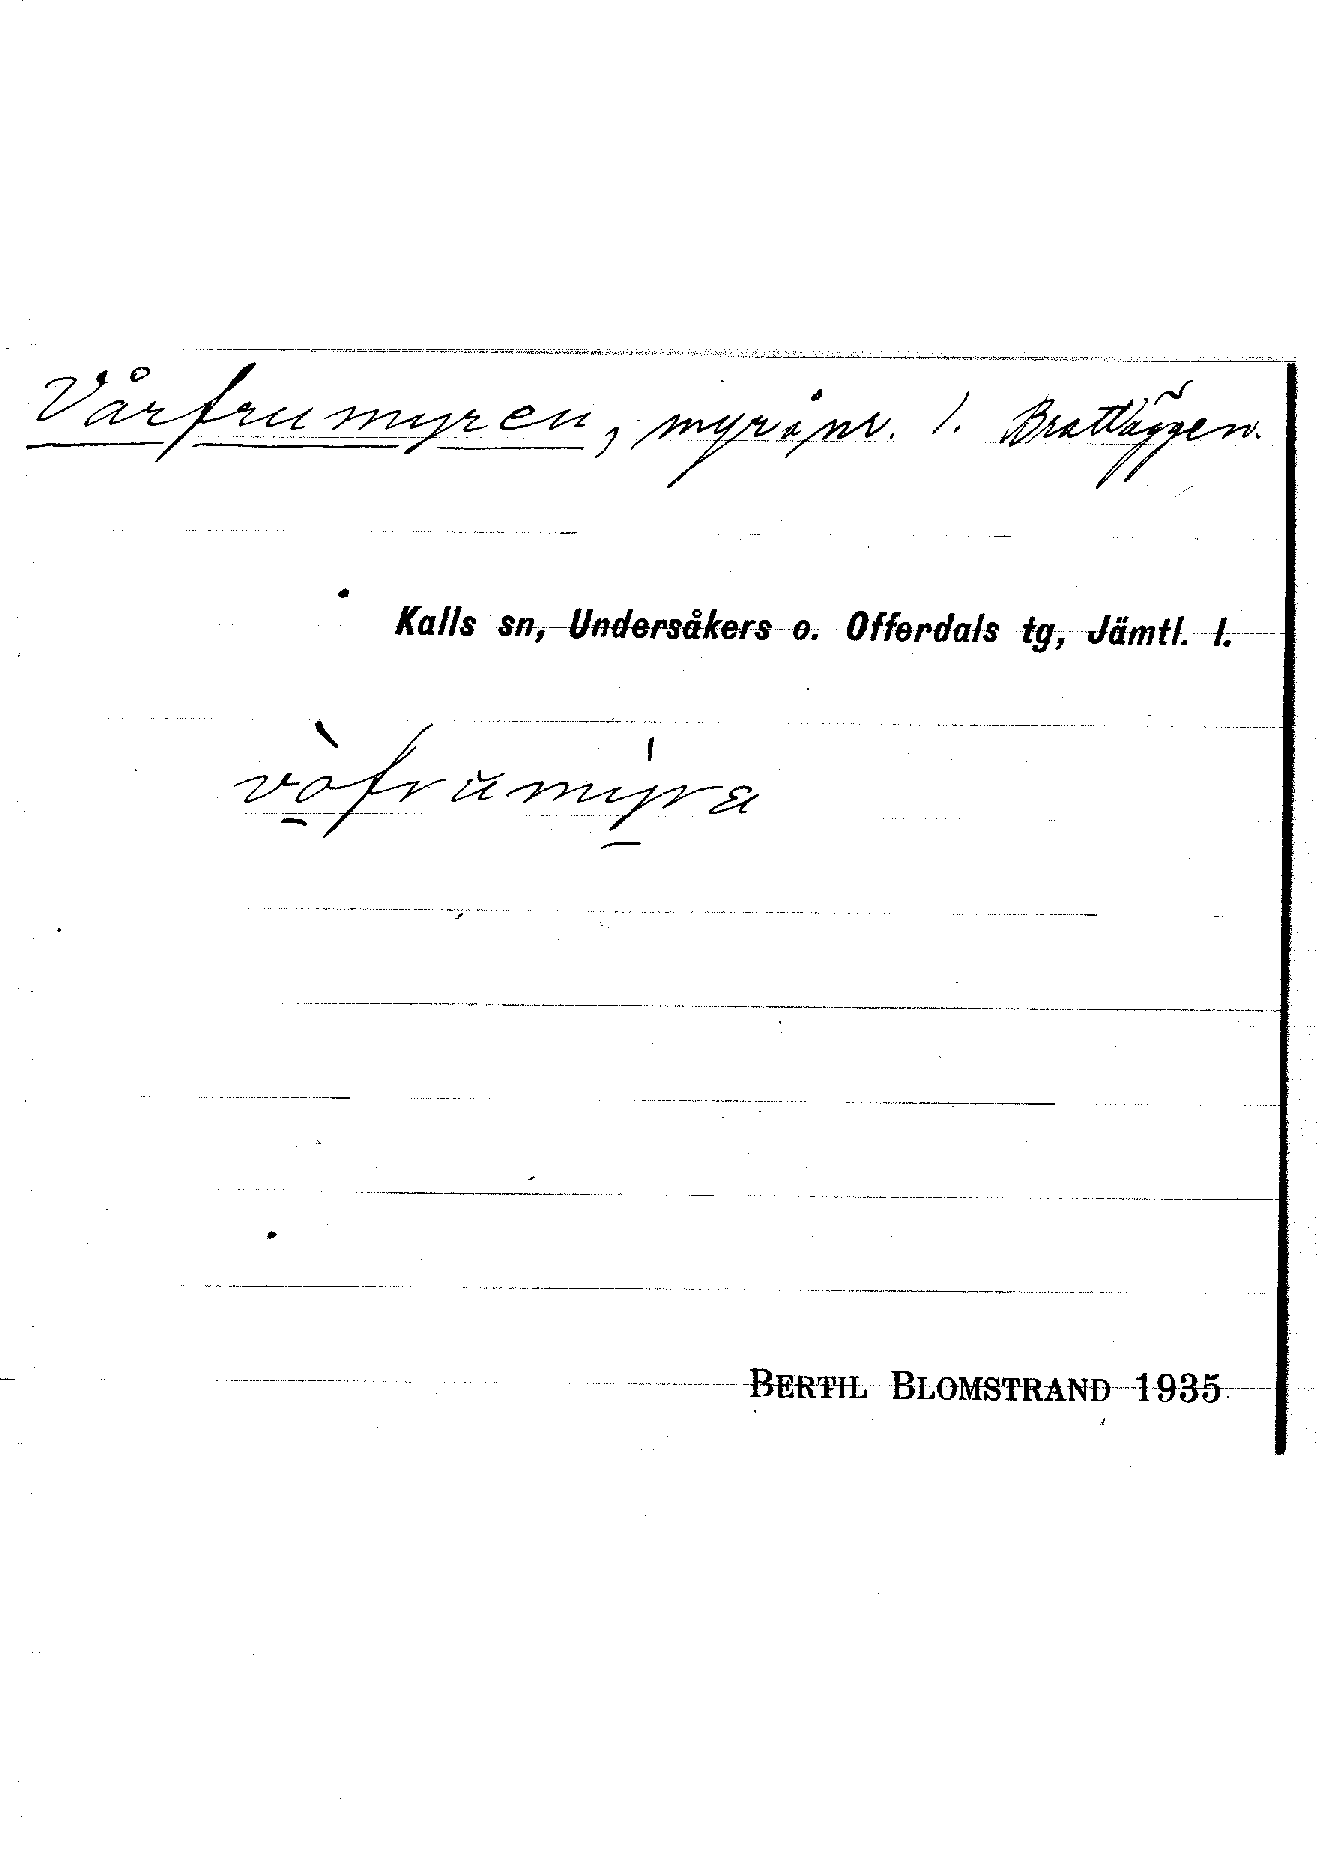 Vårfrumyren, myr å nr. 1. Brattäggen.
Kalls sn, Undersåkers o. Offerdals tg, Jämtl. l.
vòfrumyra
BERTIL BLOMSTRAND 1935